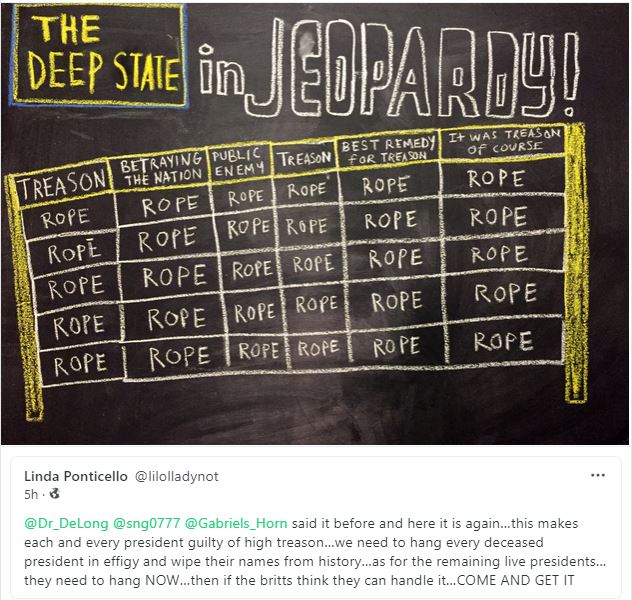 THE
DEEP STATE
in JEOPARDY!
TREASON BETRAYING THE NATION PUBLIC ENEMY TREASON BEST REMEDY FOR TREASON IT WAS TREASON OF COURSE
ROPE ROPE ROPE ROPE ROPE ROPE
ROPE ROPE ROPE ROPE ROPE ROPE
ROPE ROPE ROPE ROPE ROPE ROPE
ROPE ROPE ROPE ROPE ROPE ROPE
ROPE ROPE ROPE ROPE ROPE ROPE
Linda Ponticello @lilolladynot
5h ·
@Dr_DeLong @sng0777 @Gabriels_Horn said it before and here it is again...this makes
each and every president guilty of high treason...we need to hang every deceased
president in effigy and wipe their names from history...as for the remaining live presidents...
they need to hang NOW...then if the britts think they can handle it...COME AND GET IT